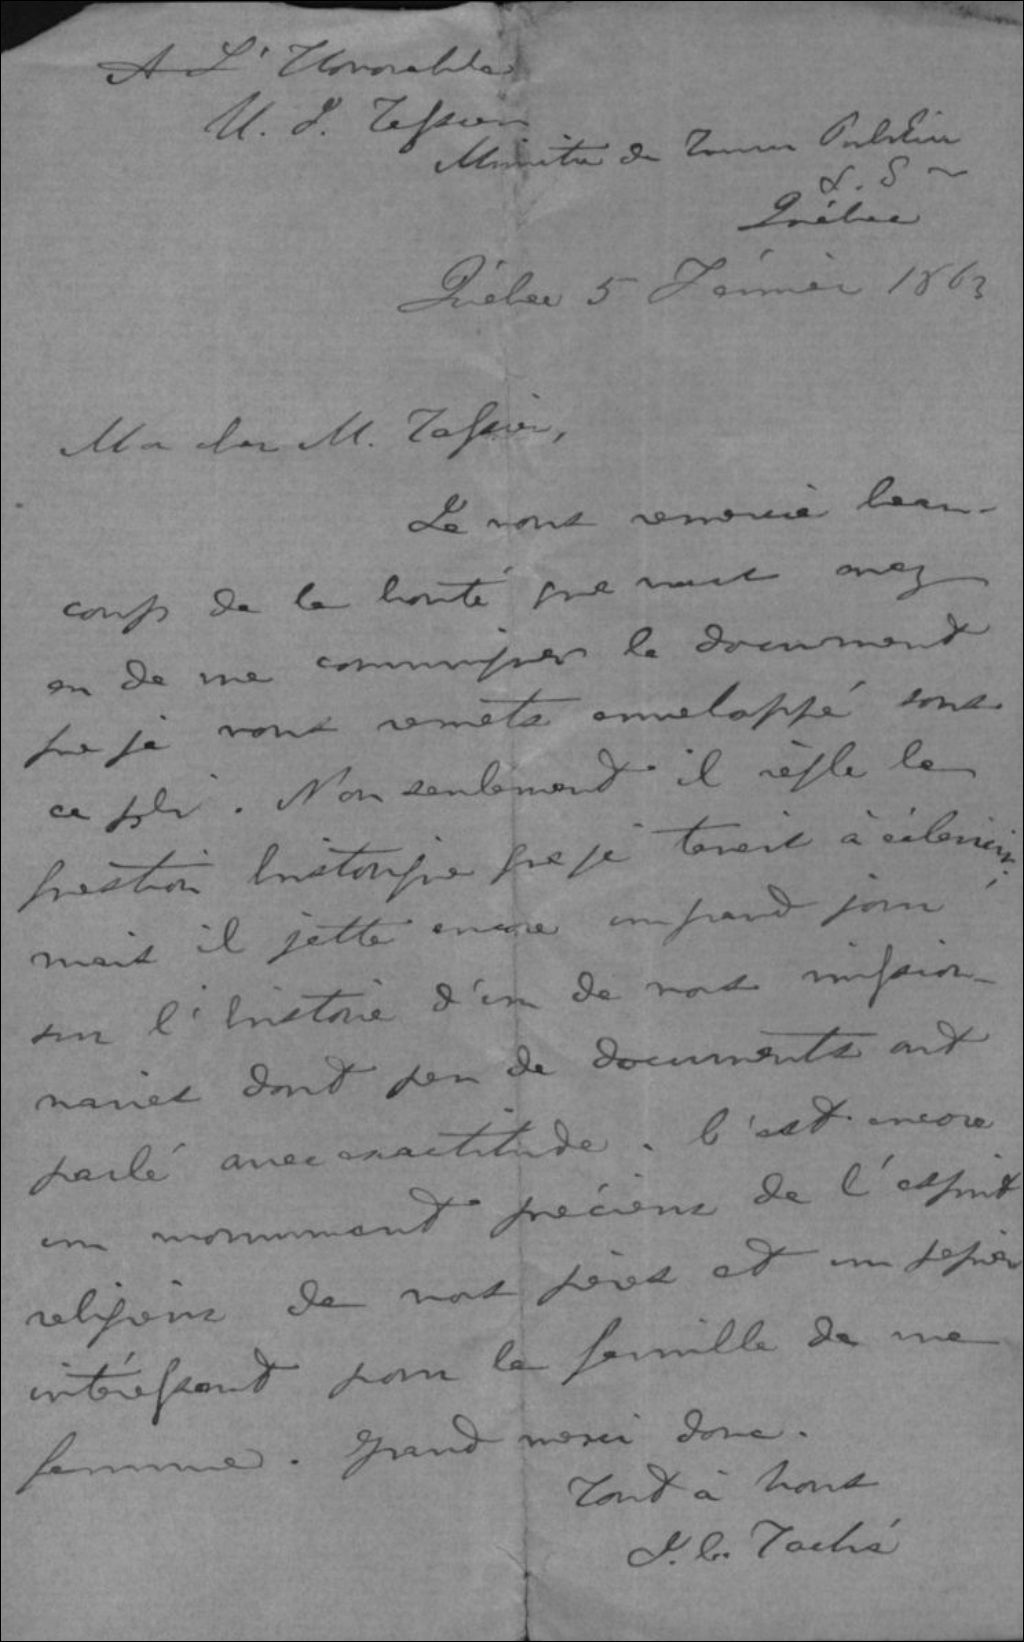 A L'Honorable
U. J. Tessier
Ministre des Travaux Publics
&. &
Québec
Québec 5 Février 1863
Mon cher M. Tessier,
Je vous remercie beau-
coup de la bonté que vous avez
eu de me communiquer le document
que je vous remets enveloppé sous
ce pli. Non seulement il règle la
question historique que je tenais à éclaircir;
mais il jette encore un grand jour
sur l'histoire d'un de nos mission-
naires dont peu de documents ont
parlé avec exactitude. C'est encore
un monument précieux de l'esprit
religieux de nos pères et un papier
intéressant pour la famille de ma
femme. Grand merci donc.
Tout à vous
J. C. Taché